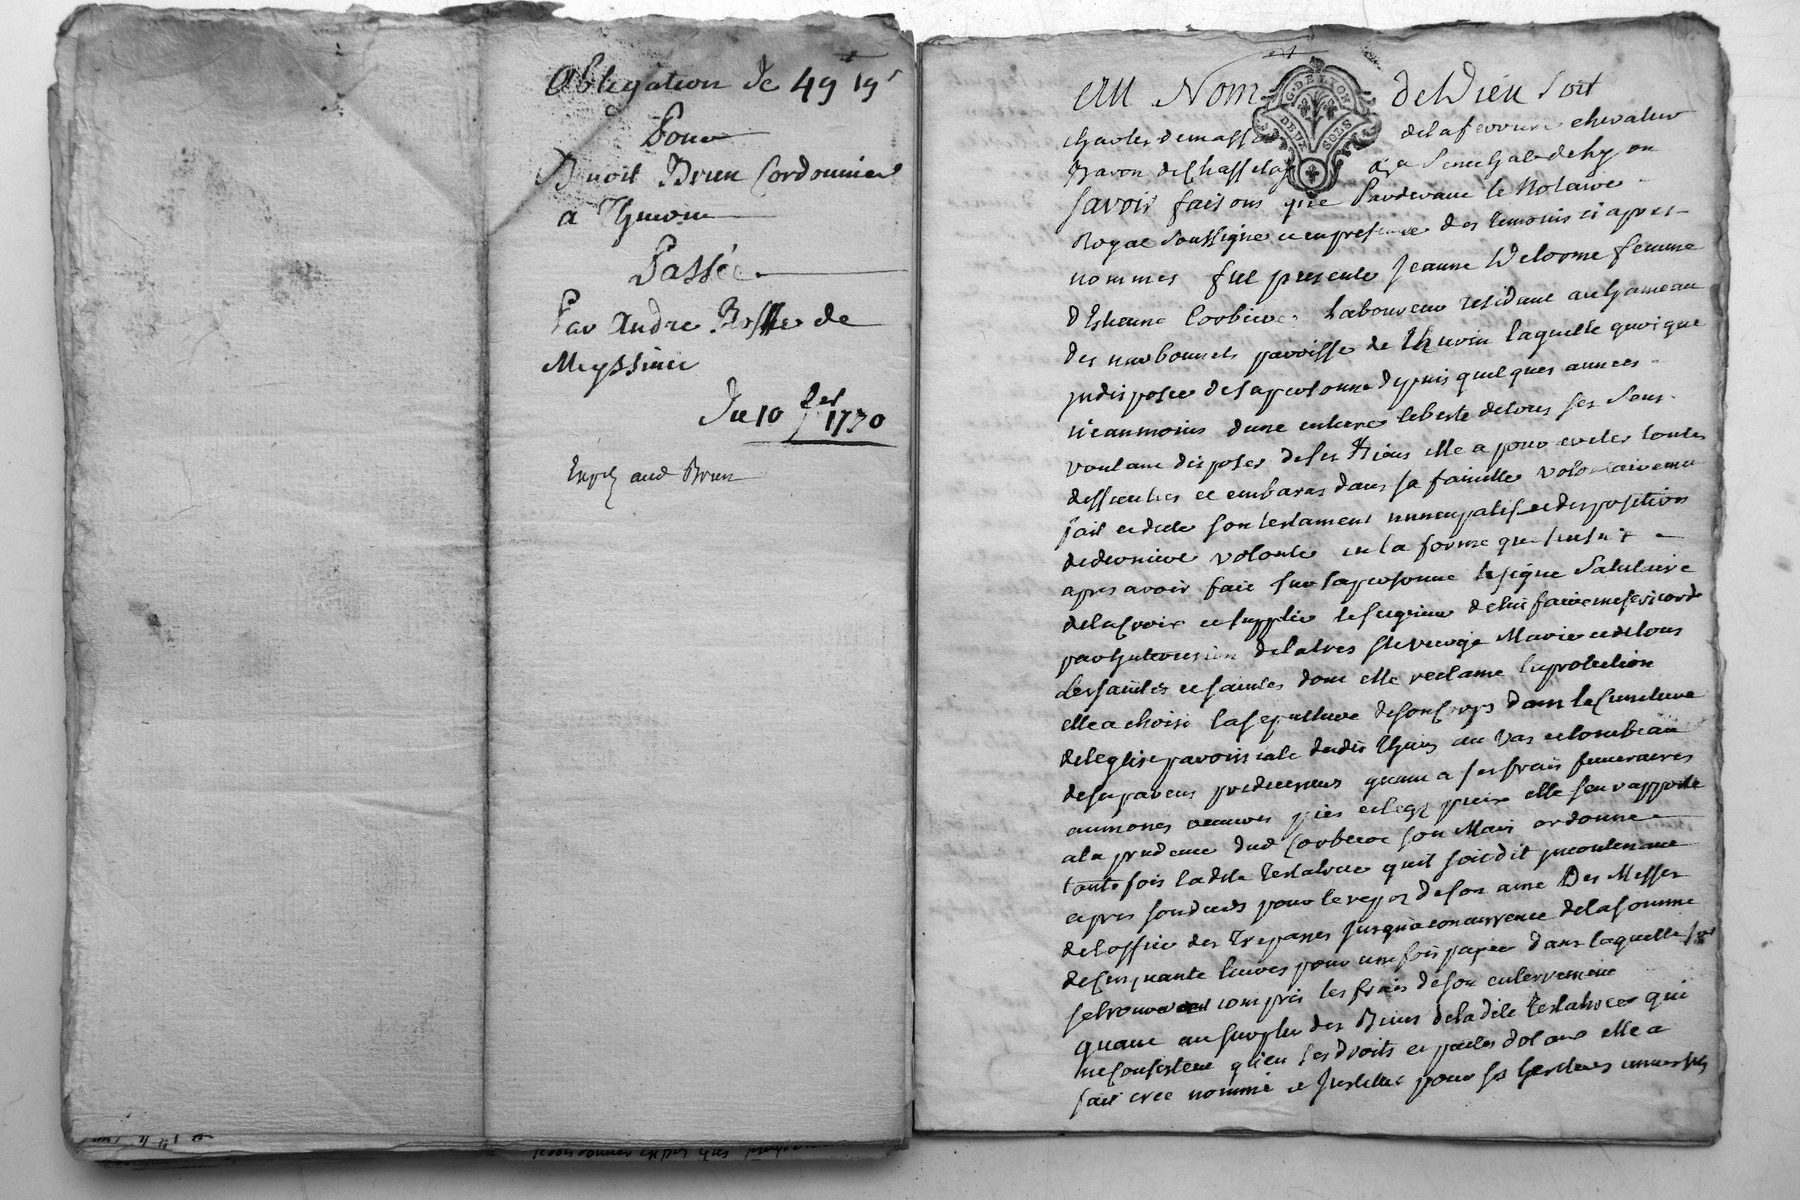 Obligation de 49 19ˢ
Pour
Benoit Brun Cordonnier
a Thurin
Passée
Par Andre de
Meyssimi
Du 10 1730
Expé aud Brun
Au Nom de Dieu Soit
G. DE LYON
DEUX SOLS
charles demasso delaferriere chevalier
Baron de Chasselay Senechal de Lyon
Savoir faisons que Pardevant le Notaire
Royal Soussigne et en presence des temoins ci apres
nommes fut presente Jeanne Delorme femme
d'Estienne Corbiere Laboureur residant au hameau
des narbonnets parroisse de thurin laquelle quoi que
indisposee de sa personne depuis quelques annees
neanmoins dans entiere liberte de tous ses Sens
voulant disposer de ses Biens elle a pour eviter toutes
difficultes et embaras dans sa famille volontairement
fait et dicte son testament nuncupatif et disposition
de derniere volonte en la forme que sensuit
apres avoir fait sur sa personne le signe Salutaire
de la Croix et supplie le seigneur de lui faire misericorde
par lintercession de la tres Ste vierge Marie et de tous
les saints et saintes dont elle reclame la protection
elle a choisi la sepulture de son Corps dans le Cimetiere
de leglise parroissiale dudit Thurin au vas et tombeau
de ses parens predecesseurs quant a ses frais funeraires
aumones œuvres pies et legs pieux elle sen rapporte
a la prudence dud Corbiere son Mari ordonne
toute fois ladite testatrice quil soit dit incontinant
apres son deces pour le repos de son ame Des Messes
de loffice des Trepasses jusqua concurrence de la somme
de Cinquante livres pour une fois payee dans laquelle
se trouveront compris les frais de son enterrement
quant au surplus des Biens de ladite testatrice qui
ne Consistent qu'en ses droits et pactes dotaux elle a
fait cree nomme et Institue pour ses heritiers universels